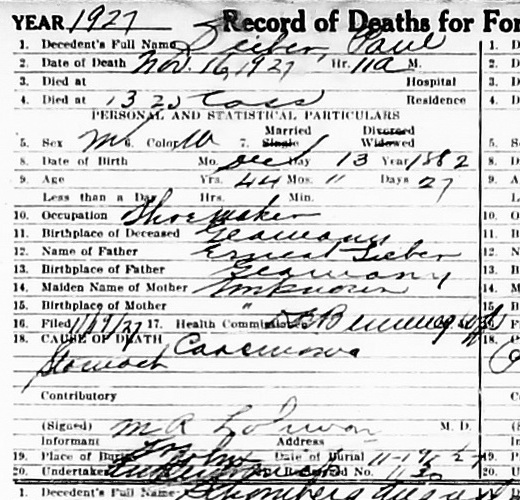 YEAR 1927 Record of Deaths for For
1. Decedent's Full Name Sieber, Paul
2. Date of Death Nov. 16, 1927 Hr. 11 a M.
3. Died at Hospital
4. Died at 1320 Cass Residence
PERSONAL AND STATISTICAL PARTICULARS
Married Divorced
5. Sex M 6. Color W 7. Single Widowed
8. Date of Birth Mo. Dec Day 13 Year 1882
9. Age Yrs. 44 Mos. 11 Days 27
Less than a Day Hrs. Min.
10. Occupation Shoemaker
11. Birthplace of Deceased Germany
12. Name of Father Ernest Sieber
13. Birthplace of Father Germany
14. Maiden Name of Mother Unknown
15. Birthplace of Mother "
16. Filed 11/17/27 17. Health Commissioner
18. CAUSE OF DEATH Carcinoma
Stomach
Contributory
(Signed) M. D.
Informant Address
19. Place of Burial Date of Burial 11-19-27
20. Undertaker No.
1. Decedent's Full Name